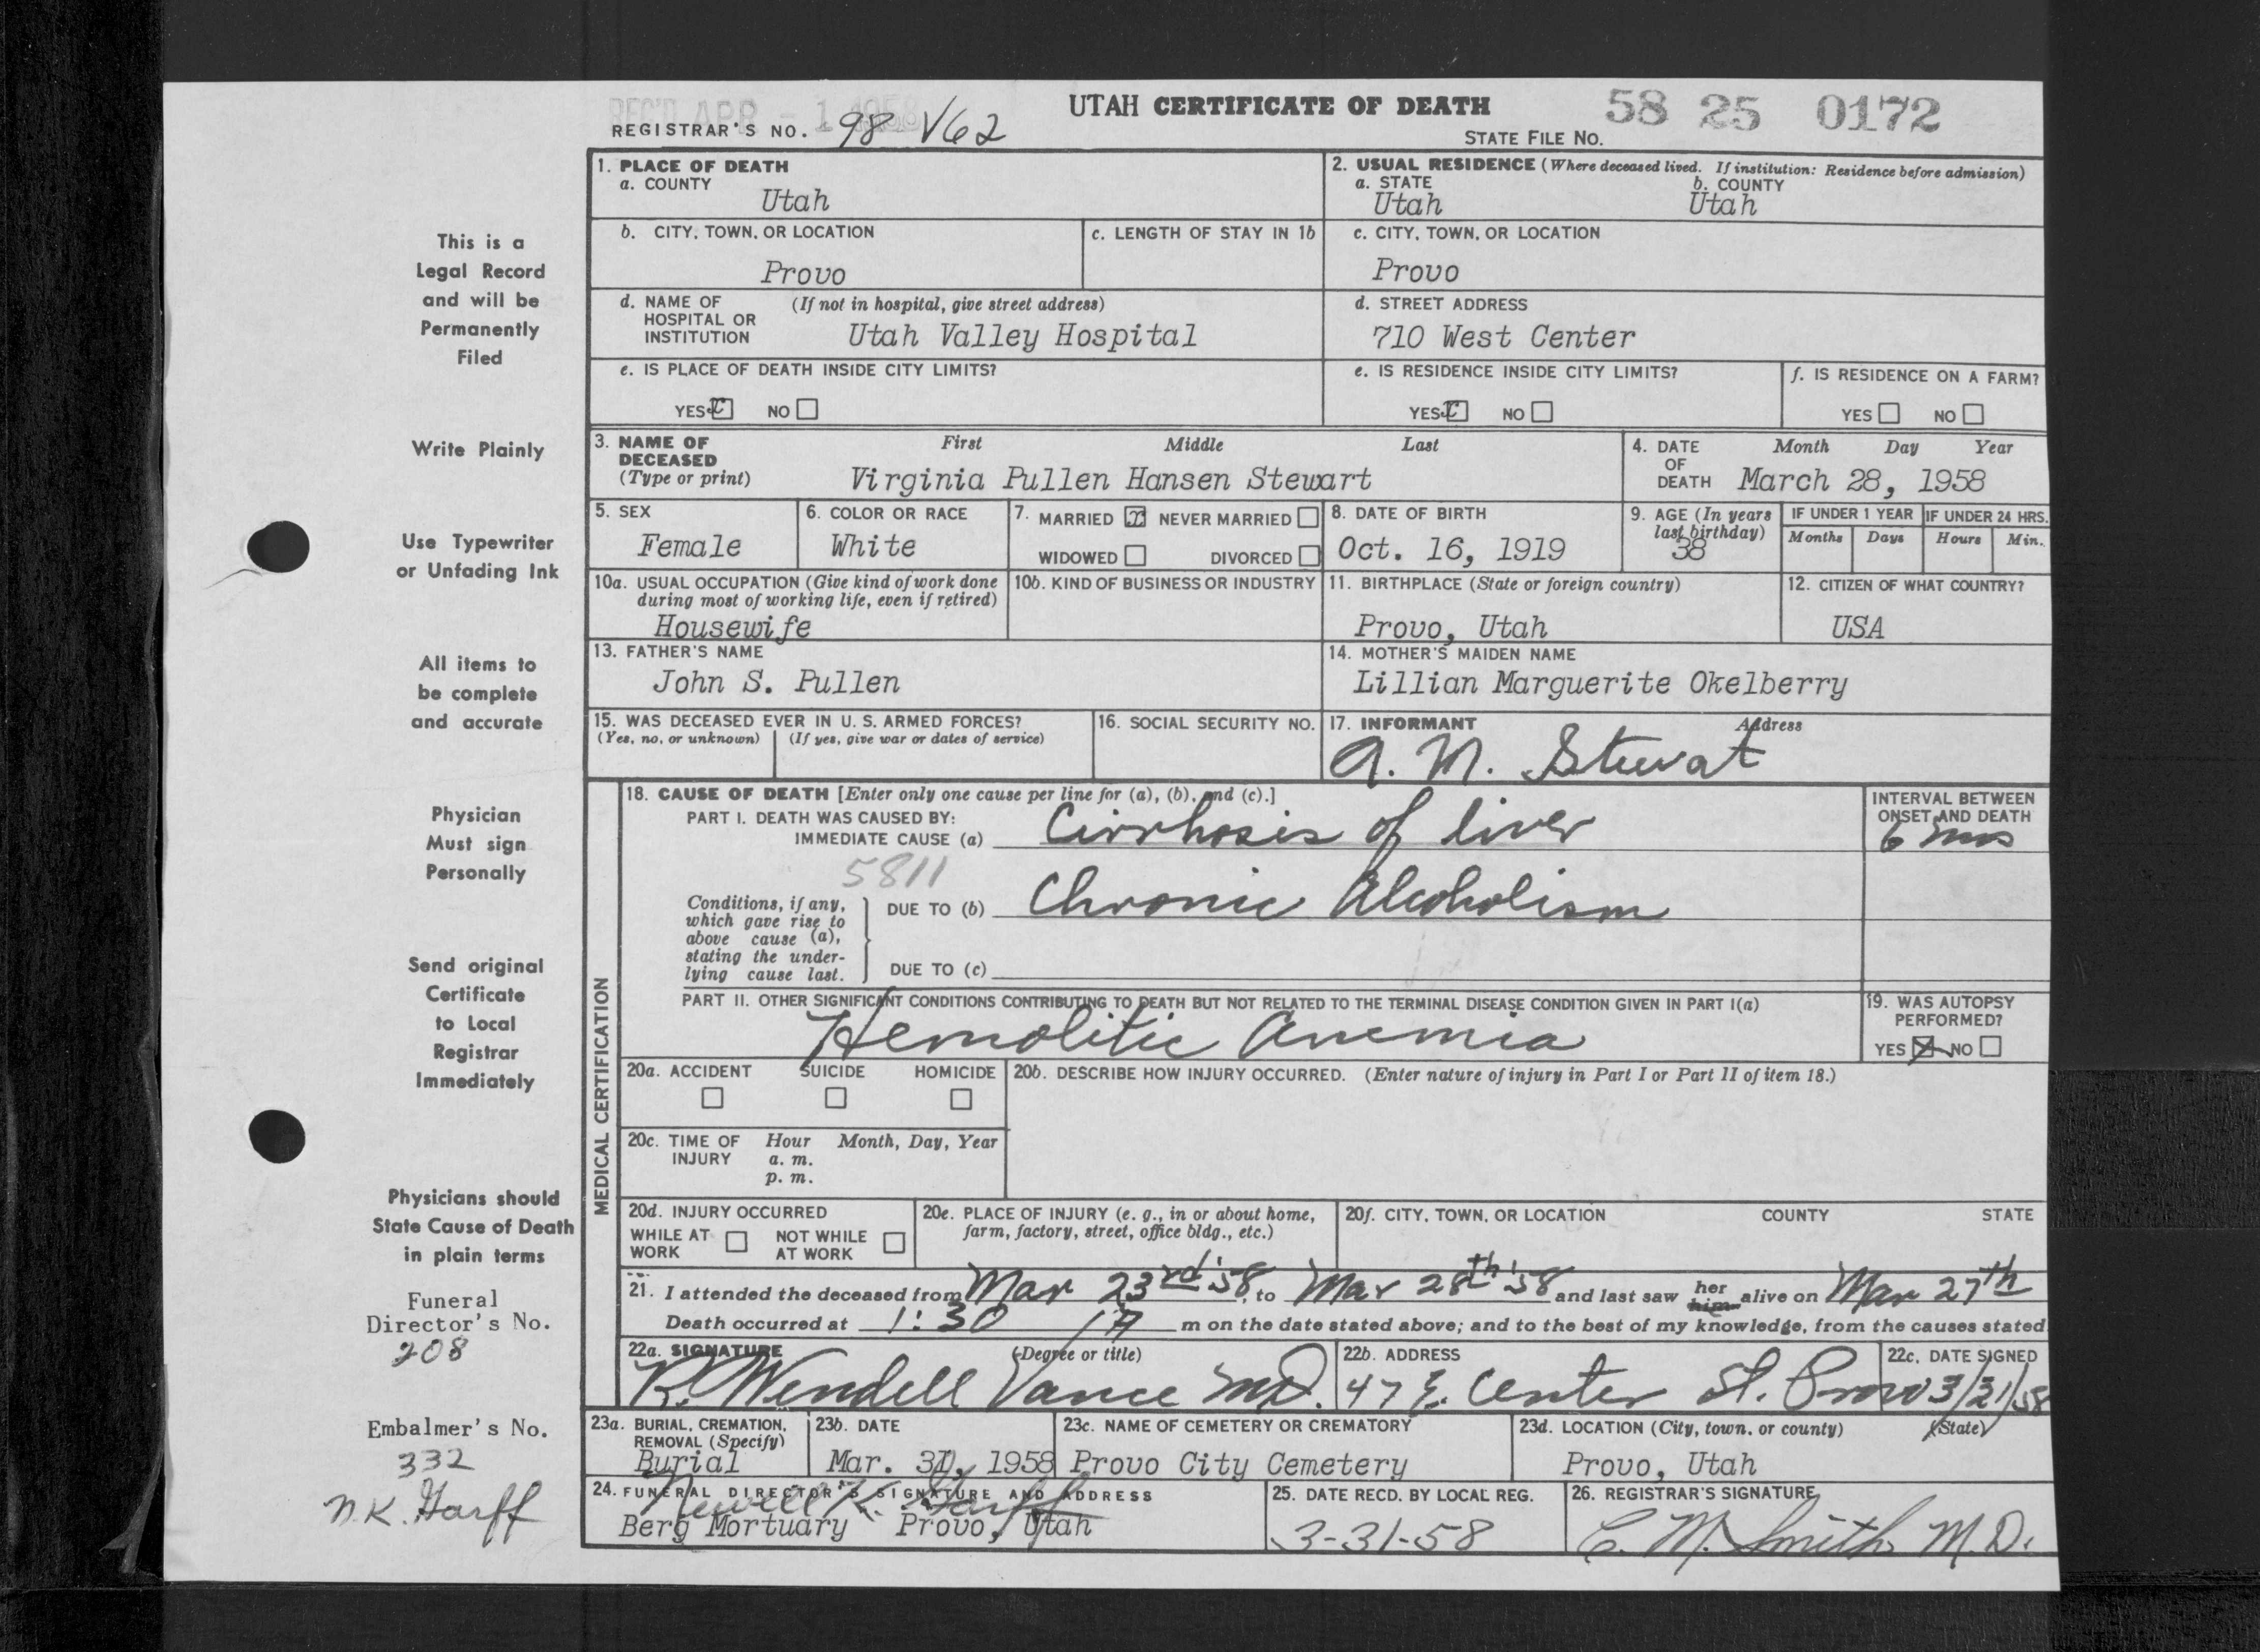 REC'D APR - 1 1958
UTAH CERTIFICATE OF DEATH
58 25 0172
REGISTRAR'S NO. 98 V62
STATE FILE NO.
This is a
Legal Record
and will be
Permanently
Filed
Write Plainly
Use Typewriter
or Unfading Ink
All items to
be complete
and accurate
Physician
Must sign
Personally
Send original
Certificate
to Local
Registrar
Immediately
Physicians should
State Cause of Death
in plain terms
Funeral
Director's No.
208
Embalmer's No.
332
N.K. Harff
1. PLACE OF DEATH
a. COUNTY
Utah
2. USUAL RESIDENCE (Where deceased lived. If institution: Residence before admission)
a. STATE b. COUNTY
Utah Utah
b. CITY, TOWN, OR LOCATION
Provo
c. LENGTH OF STAY IN 1b
c. CITY, TOWN, OR LOCATION
Provo
d. NAME OF HOSPITAL OR INSTITUTION (If not in hospital, give street address)
Utah Valley Hospital
d. STREET ADDRESS
710 West Center
e. IS PLACE OF DEATH INSIDE CITY LIMITS?
YES x NO
e. IS RESIDENCE INSIDE CITY LIMITS?
YES x NO
f. IS RESIDENCE ON A FARM?
YES NO
3. NAME OF DECEASED (Type or print) First Middle Last
Virginia Pullen Hansen Stewart
4. DATE OF DEATH Month Day Year
March 28, 1958
5. SEX
Female
6. COLOR OR RACE
White
7. MARRIED x NEVER MARRIED
WIDOWED DIVORCED
8. DATE OF BIRTH
Oct. 16, 1919
9. AGE (In years last birthday)
38
IF UNDER 1 YEAR IF UNDER 24 HRS.
Months Days Hours Min.
10a. USUAL OCCUPATION (Give kind of work done during most of working life, even if retired)
Housewife
10b. KIND OF BUSINESS OR INDUSTRY
11. BIRTHPLACE (State or foreign country)
Provo, Utah
12. CITIZEN OF WHAT COUNTRY?
USA
13. FATHER'S NAME
John S. Pullen
14. MOTHER'S MAIDEN NAME
Lillian Marguerite Okelberry
15. WAS DECEASED EVER IN U. S. ARMED FORCES?
(Yes, no, or unknown) (If yes, give war or dates of service)
16. SOCIAL SECURITY NO.
17. INFORMANT Address
A. M. Stewat
MEDICAL CERTIFICATION
18. CAUSE OF DEATH [Enter only one cause per line for (a), (b), and (c).]
PART I. DEATH WAS CAUSED BY:
IMMEDIATE CAUSE (a) Cirrhosis of liver
INTERVAL BETWEEN ONSET AND DEATH
6 mos
5811
Conditions, if any, which gave rise to above cause (a), stating the underlying cause last.
DUE TO (b) Chronic Alcoholism
DUE TO (c)
PART II. OTHER SIGNIFICANT CONDITIONS CONTRIBUTING TO DEATH BUT NOT RELATED TO THE TERMINAL DISEASE CONDITION GIVEN IN PART I(a)
Hemolitic anemia
19. WAS AUTOPSY PERFORMED?
YES x NO
20a. ACCIDENT SUICIDE HOMICIDE
20b. DESCRIBE HOW INJURY OCCURRED. (Enter nature of injury in Part I or Part II of item 18.)
20c. TIME OF INJURY Hour Month, Day, Year
a. m.
p. m.
20d. INJURY OCCURRED
WHILE AT WORK NOT WHILE AT WORK
20e. PLACE OF INJURY (e. g., in or about home, farm, factory, street, office bldg., etc.)
20f. CITY, TOWN, OR LOCATION COUNTY STATE
21. I attended the deceased from Mar 23rd '58, to Mar 28th '58 and last saw her him alive on Mar 27th
Death occurred at 1:30 A m on the date stated above; and to the best of my knowledge, from the causes stated
22a. SIGNATURE (Degree or title)
R. Wendell Vance MD.
22b. ADDRESS
47 E. Center St. Provo
22c. DATE SIGNED
3/31/58
23a. BURIAL, CREMATION, REMOVAL (Specify)
Burial
23b. DATE
Mar. 31, 1958
23c. NAME OF CEMETERY OR CREMATORY
Provo City Cemetery
23d. LOCATION (City, town, or county) (State)
Provo, Utah
24. FUNERAL DIRECTOR'S SIGNATURE AND ADDRESS
Newell K. Harff
Berg Mortuary Provo, Utah
25. DATE RECD. BY LOCAL REG.
3-31-58
26. REGISTRAR'S SIGNATURE
C. M. Smith M.D.